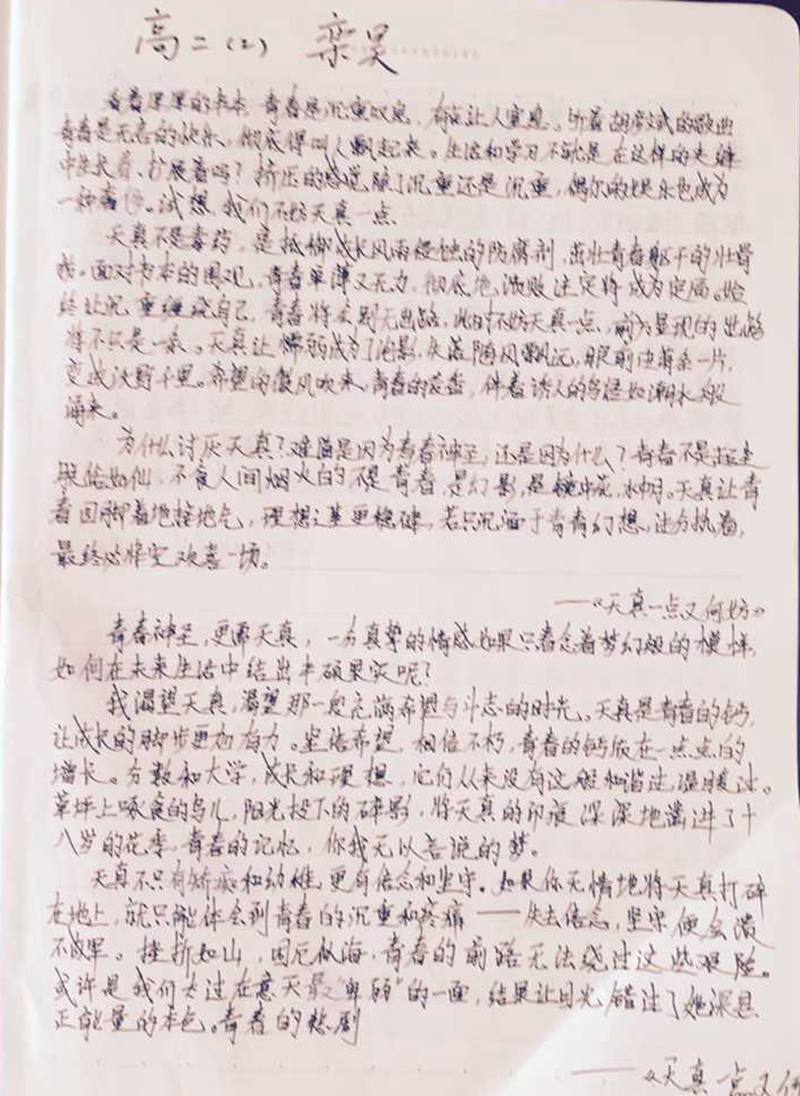 高二（2） 栾昊
看着厚厚的书本，青春是沉重叹息，有点让人窒息。听着胡彦斌的歌曲
青春是无言的快乐，彻底得叫人飘起来。生活和学习不就是在这样的夹缝
中生长着、扩展着吗？挤压的感觉除了沉重还是沉重，偶尔的娱乐也成为
一种奢侈。试想，我们不妨天真一点
天真不是毒药，是抵御成长风雨侵蚀的防腐剂，茁壮青春躯干的壮骨
。面对书本的围观，青春单薄又无力，彻底地溃败注定将成为定局。始
终让沉重缠绕自己，青春将会别无出路，此时不妨天真一点，前方显现的出路
将不只是一条。天真让懦弱成为了泡影，失落随风飘远，眼前一片，
变成沃野千里。希望的微风吹来，青春的花香，伴着诱人的如潮水般
涌来。
为什么讨厌天真？难道是因为青春神圣，还是因为什么？青春不是超凡
脱俗如仙，不食人间烟火的不是青春，是幻影，是镜中花，水中月。天真让青
春回脚着地接地气，理想之基更稳健，若只沉湎于青春幻想，注为执着，
最终必将空欢喜一场。
——《天真一点又何妨》
青春神圣，更需天真，一分真挚的情感如果只吝念着梦幻般的模样，
如何在未来生活中结出丰硕果实呢？
我渴望天真，渴望那一段充满希望与斗志的时光。天真是青春的钙，
让成长的脚步更加有力。坚信希望，相信不朽，青春的钙质在一点点的
增长。分数和大学，成长和理想，它们从未没有这般和谐过，温暖过。
草坪上啄食的鸟儿，阳光投下的碎影，将天真的印痕深深地凿进了十
八岁的花季，青春的记忆，你我无以言说的梦。
天真不只有娇痴和幼稚，更有信念和坚守。如果你无情地将天真打碎
在地上，就只能体会到青春的沉重和疼痛——失去信念，坚守便会溃
不成军。挫折如山，困厄似海，青春的前路无法绕过这些艰险。
或许是我们太过在意天真“卑弱”的一面，结果让目光错过了她深具
正能量的本色。青春的悲剧
——《天真一点又何